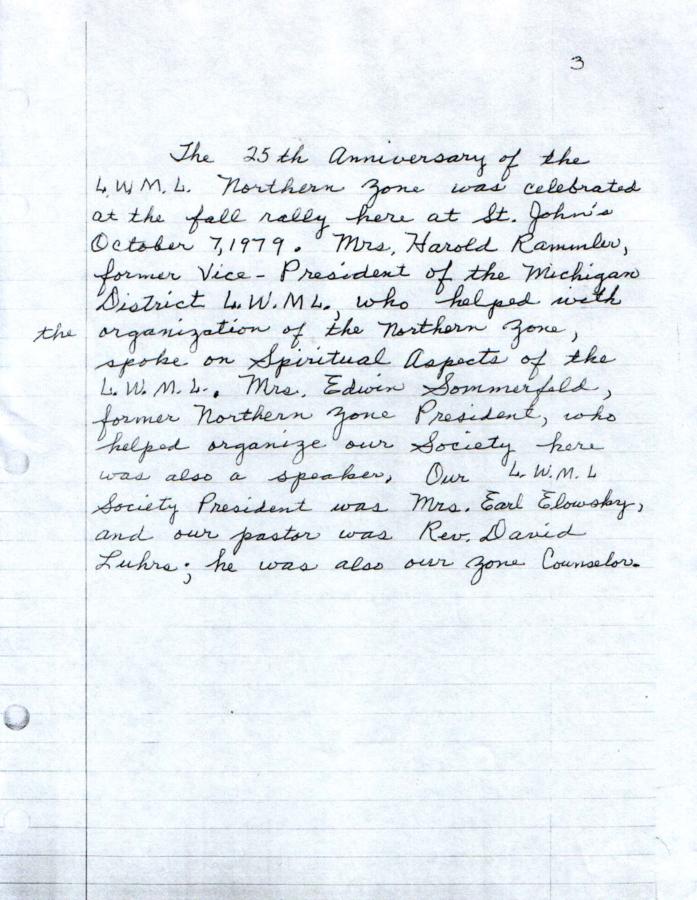 3
The 25th Anniversary of the
L.W.M.L. Northern Zone was celebrated
at the fall rally here at St. John's
October 7, 1979. Mrs. Harold Rammler,
former Vice-President of the Michigan
District L.W.M.L., who helped with
the organization of the Northern Zone,
spoke on Spiritual Aspects of the
L.W.M.L. Mrs. Edwin Sommerfeld,
former Northern Zone President, who
helped organize our Society here
was also a speaker. Our L.W.M.L
Society President was Mrs. Earl Elowsky,
and our pastor was Rev. David
Luhrs; he was also our Zone Counselor.